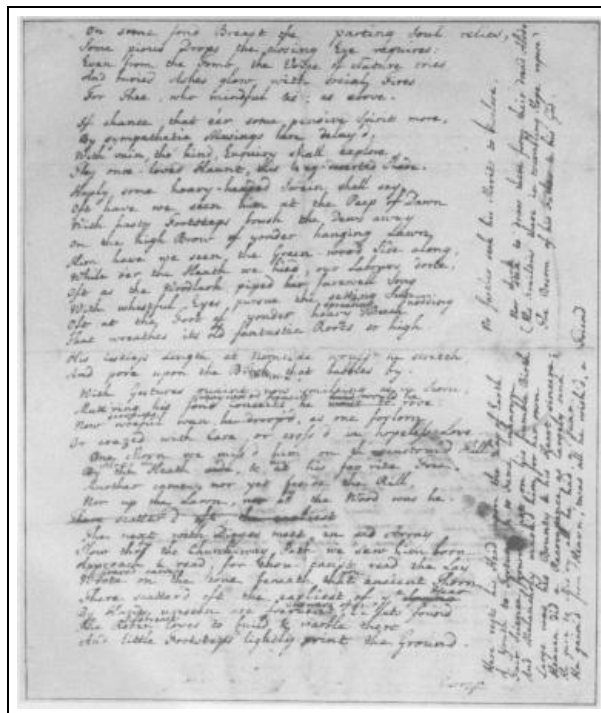 On some fond Breast the parting Soul relies,
Some pious Drops the closing Eye requires:
Even from the Tomb, the Voice of Nature cries
And buried Ashes glow with social Fires
For Thee, who mindful &c: as above.
If chance, that e'er some pensive Spirit more,
By sympathetic Musings here delay'd,
With vain, tho' kind, Enquiry shall explore
Thy once-loved Haunt, this long-deserted Shade.
Haply some hoary-headed Swain shall say,
Oft have we seen him at the Peep of Dawn
With hasty Footsteps brush the Dews away
On the high Brow of yonder hanging Lawn
Him have we seen the Green-wood Side along,
While o'er the Heath we hied, our Labours done,
Oft as the Woodlark piped her farewell Song
With whistful Eyes pursue the setting Sun.
Oft at the Foot of yonder hoary Beech
That wreathes its old fantastic Roots so high
His listless Length at Noontide would he stretch
And pore upon the Brook that babbles by.
With Gestures quaint now smiling as in Scorn
Mutt'ring his fond Conceits he would he rove:
Now woeful wan, he droop'd, as one forlorn
Or crazed with Care or cross'd in hopeless Love
One Morn we miss'd him on th' accustom'd Hill
By the Heath side, & at his fav'rite Tree.
Another came, nor yet beside the Rill,
Nor up the Lawn, nor at the Wood was he.
There scatter'd oft the earliest
The next with Dirges meet in sad Array
Slow thro' the Church-way Path we saw him born
Approach & read, for thou can'st read the Lay
Wrote on the Stone beneath that ancient Thorn
There scatter'd oft the earliest of y<sup>e</sup> Year
By Hands unseen are Violets found
The Robin loves to build & warble there
And little Footsteps lightly print the Ground.
Here rests his Head upon the Lap of Earth
A Youth to Fortune & to Fame unknown
Fair Science frown'd not on his humble Birth
And Melancholy mark'd him for her own
Large was his Bounty & his Heart sincere;
Heaven did a Recompence as largely send.
He gave to Mis'ry all he had, a Tear.
He gain'd from Heaven, 'twas all he wish'd, a Friend
No farther seek his Merits to disclose,
Nor to draw them from their dread Abode
(His Frailties there in trembling Hope repose)
The Bosom of his Father & his God.